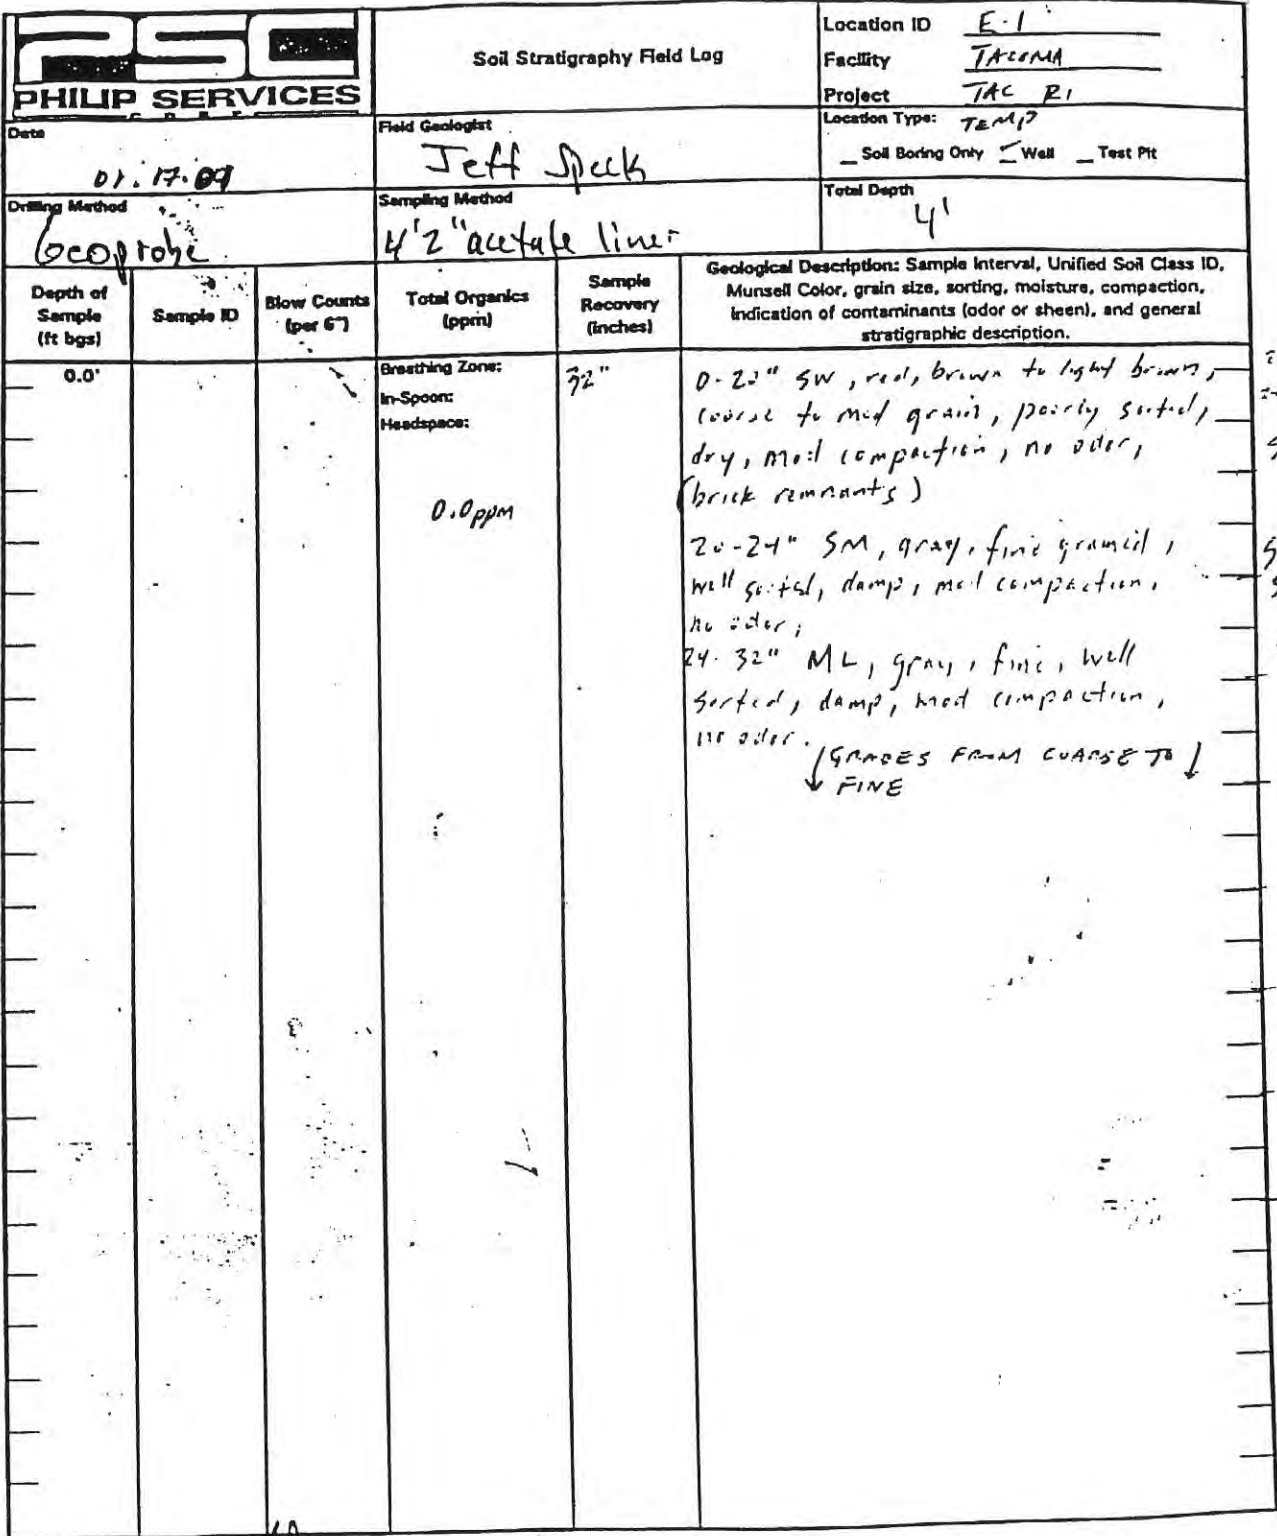 PSC
PHILIP SERVICES
CORP
Soil Stratigraphy Field Log
Location ID E-1
Facility TACOMA
Project TAC RI
Date
01.17.
Field Geologist
Jeff Speck
Location Type: TEMP
_ Soil Boring Only ✓ Well _ Test Pit
Drilling Method
Geoprobe
Sampling Method
4' 2" acetate liner
Total Depth
4'
Depth of
Sample
(ft bgs)
Sample ID
Blow Counts
(per 6")
Total Organics
(ppm)
Sample
Recovery
(inches)
Geological Description: Sample Interval, Unified Soil Class ID,
Munsell Color, grain size, sorting, moisture, compaction,
indication of contaminants (odor or sheen), and general
stratigraphic description.
0.0'
Breathing Zone:
In-Spoon:
Headspace:
0.0ppm
32"
0-20" SW, red, brown to light brown,
course to med grain, poorly sorted,
dry, mod compaction, no odor,
(brick remnants)
20-24" SM, gray, fine grained,
well sorted, damp, mod compaction,
no odor,
24-32" ML, gray, fine, well
sorted, damp, mod compaction,
no odor.
↓ GRADES FROM COARSE TO ↓
FINE